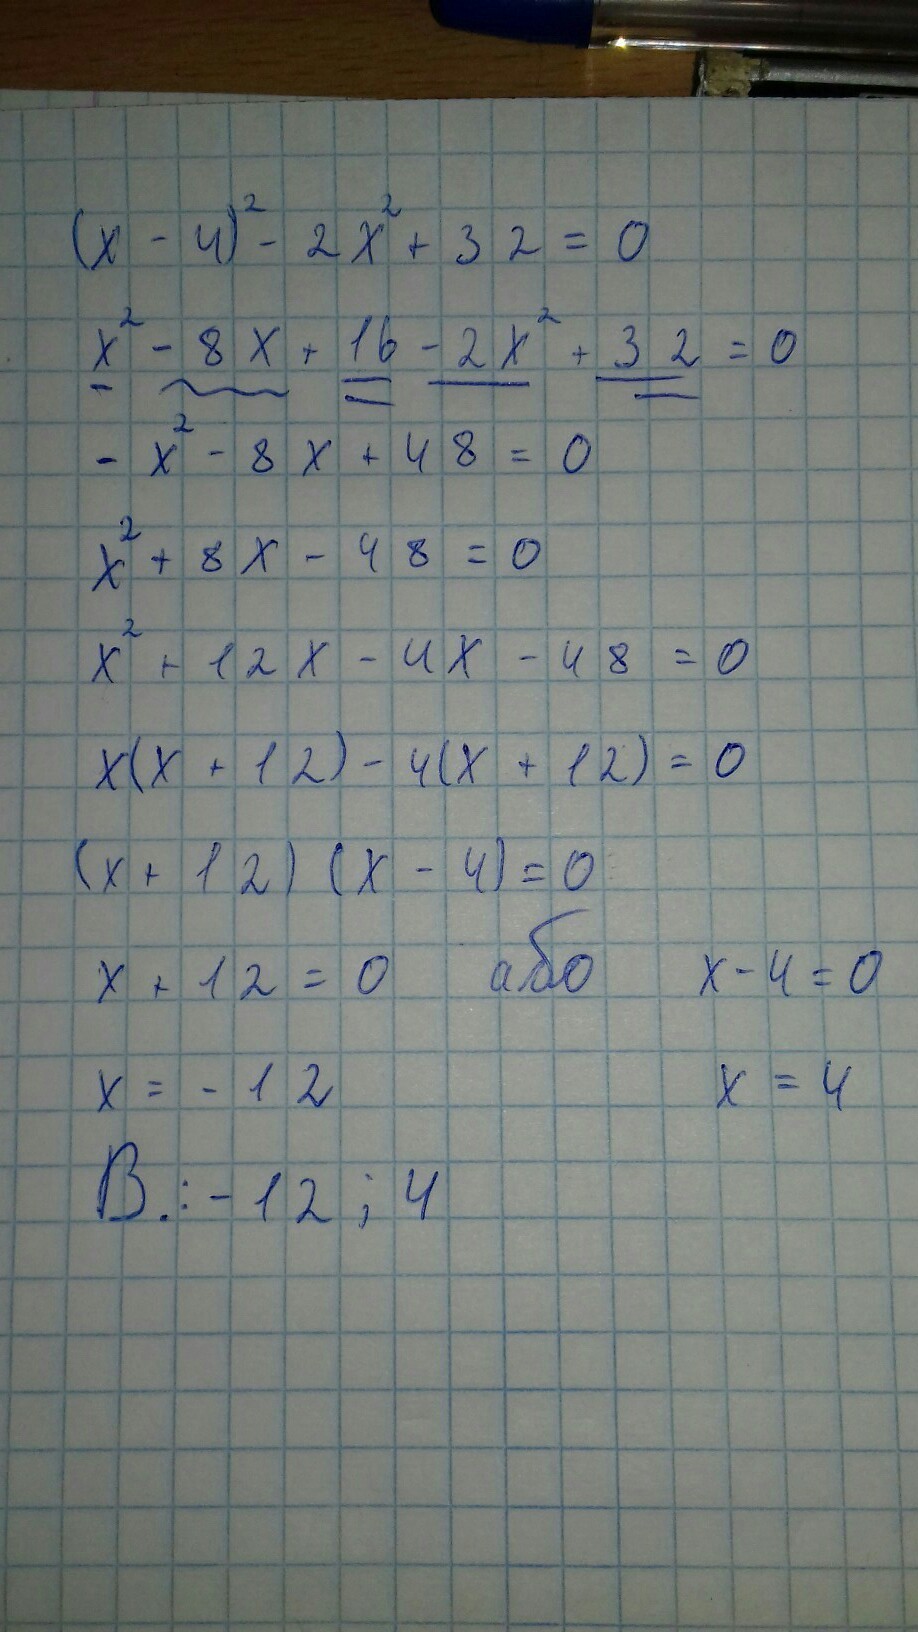 (x - 4)² - 2x² + 32 = 0
x² - 8x + 16 - 2x² + 32 = 0
- x² - 8x + 48 = 0
x² + 8x - 48 = 0
x² + 12x - 4x - 48 = 0
x(x + 12) - 4(x + 12) = 0
(x + 12) (x - 4) = 0
x + 12 = 0 або x - 4 = 0
x = - 12 x = 4
В.: - 12 ; 4